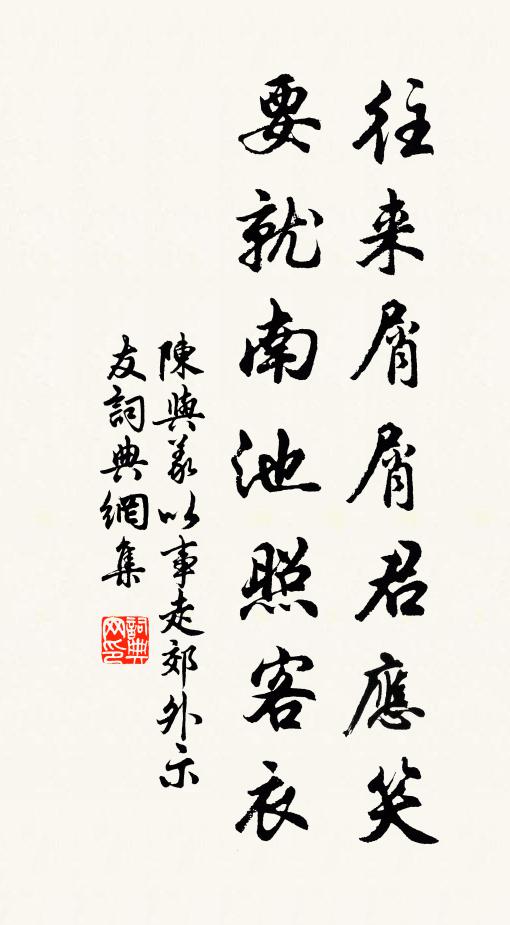 往来屑屑君應笑
要就南池照客衣
陳與義以事走郊外示
友詞典網集
詞典
网印